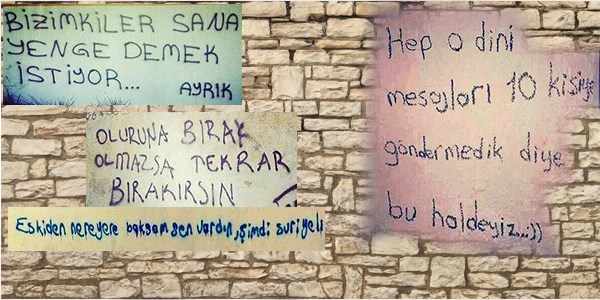 BİZİMKİLER SANA
YENGE DEMEK
İSTİYOR...
AYRIK
OLURUNA BIRAK
OLMAZSA TEKRAR
BIRAKIRSIN
Eskiden nereyere baksam sen vardın, şimdi suriyeli
Hep o dini
mesajları 10 kişiye
göndermedik diye
bu haldeyiz...:))